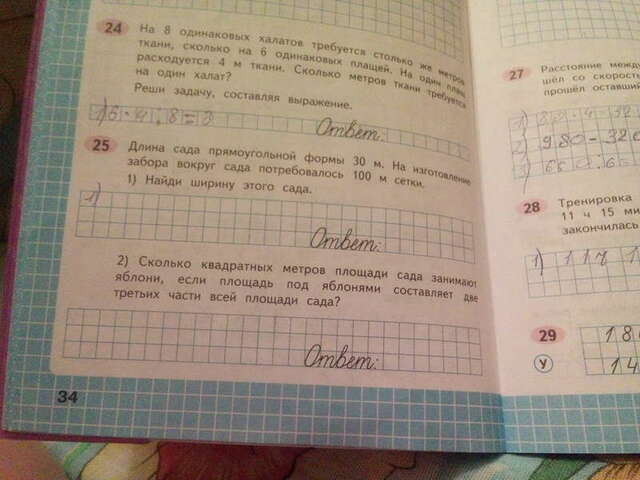 24
На 8 одинаковых халатов требуется столько же метров
ткани, сколько на 6 одинаковых плащей. На один плащ
расходуется 4 м ткани. Сколько метров ткани требуется
на один халат?
Реши задачу, составляя выражение.
1) 6 · 4 : 8 = 3
Ответ:
25
Длина сада прямоугольной формы 30 м. На изготовление
забора вокруг сада потребовалось 100 м сетки.
1) Найди ширину этого сада.
1)
Ответ:
2) Сколько квадратных метров площади сада занимают
яблони, если площадь под яблонями составляет две
третьих части всей площади сада?
Ответ:
34
27
Расстояние между
шёл со скорость
прошёл оставший
1) 80 · 4 = 32
2) 980 - 320
3) 660 : 6
28
Тренировка
11 ч 15 ми
закончилась
1) 11 ч 1
29
У
180
14